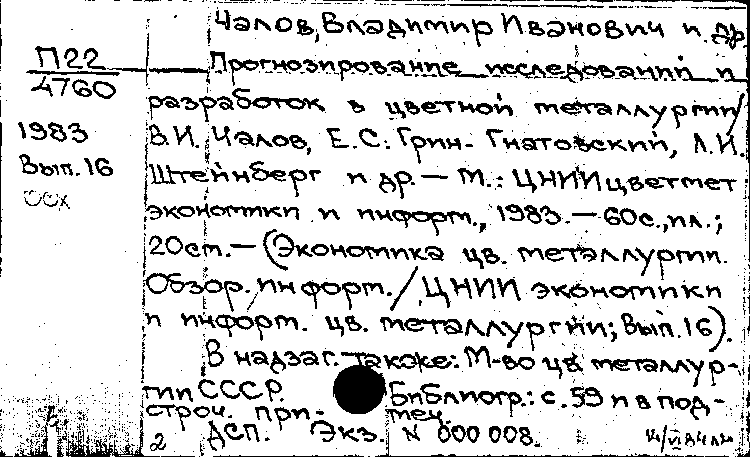 Чалов, Владимир Иванович и др.
П22
4760
Прогнозирование исследований и
разработок в цветной металлургии/
1983
В.И. Чалов, Е.С. Грин-Гнатовский, Л.И.
Вып. 16
Штейнберг и др. — М.: ЦНИИцветмет
экономики и информ., 1983. — 60с., ил.;
20см. — (Экономика цв. металлургии.
Обзор. информ./ЦНИИ экономики
и информ. цв. металлургии; Вып. 16).
В надзаг. также: М-во цв. металлур-
гии СССР. Библиогр.: с. 59 и в под-
строч. примеч.
ДСП. Экз. N 000 008.
2